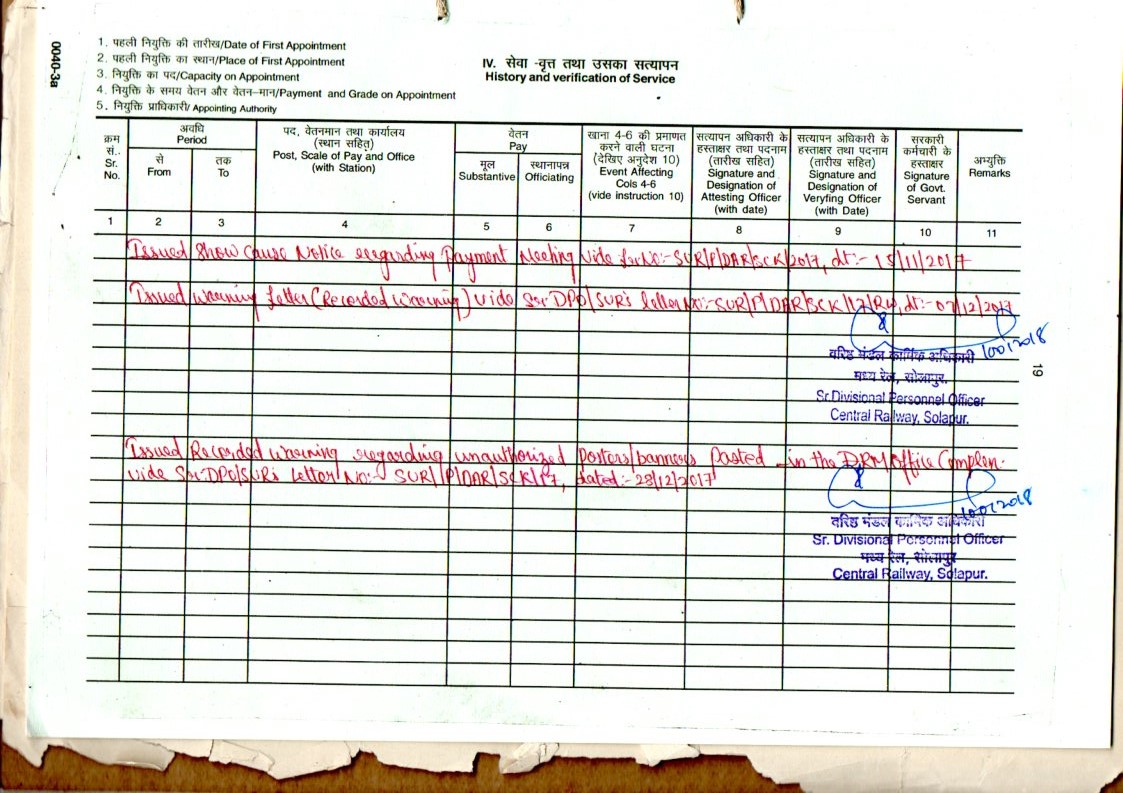 0040-3a
1. पहली नियुक्ति की तारीख/Date of First Appointment
2. पहली नियुक्ति का स्थान/Place of First Appointment
3. नियुक्ति का पद/Capacity on Appointment
4. नियुक्ति के समय वेतन और वेतन-मान/Payment and Grade on Appointment
5. नियुक्ति प्राधिकारी/ Appointing Authority
IV. सेवा -वृत्त तथा उसका सत्यापन
History and verification of Service
क्रम सं.. Sr. No.
अवधि Period
से From
तक To
पद, वेतनमान तथा कार्यालय (स्थान सहित) Post, Scale of Pay and Office (with Station)
वेतन Pay
मूल Substantive
स्थानापन्न Officiating
खाना 4-6 की प्रमाणत करने वाली घटना (देखिए अनुदेश 10) Event Affecting Cols 4-6 (vide instruction 10)
सत्यापन अधिकारी के हस्ताक्षर तथा पदनाम (तारीख सहित) Signature and Designation of Attesting Officer (with date)
सत्यापन अधिकारी के हस्ताक्षर तथा पदनाम (तारीख सहित) Signature and Designation of Veryfing Officer (with Date)
सरकारी कर्मचारी के हस्ताक्षर Signature of Govt. Servant
अभ्युक्ति Remarks
1 2 3 4 5 6 7 8 9 10 11
Issued Show Cause Notice regarding Payment Meeting vide No:- SUR/P/DAR/SCK/2017, dt:- 15/11/2017
Issued warning letter (Recorded warning) vide Sr.DPO/SUR's letter No:- SUR/P/DAR/SCK/17/RW, dt:- 07/12/2017
वरिष्ठ मंडल कार्मिक अधिकारी
मध्य रेल, सोलापुर.
Sr.Divisional Personnel Officer
Central Railway, Solapur.
19
Issued Recorded warning regarding unauthorized Posters/banners Pasted in the DRM Office Complex.
vide Sr.DPO/SUR's Letter No:- SUR/P/DAR/SCK/17, dated:- 28/12/2017
वरिष्ठ मंडल कार्मिक अधिकारी
Sr. Divisional Personnel Officer
मध्य रेल, सोलापुर
Central Railway, Solapur.